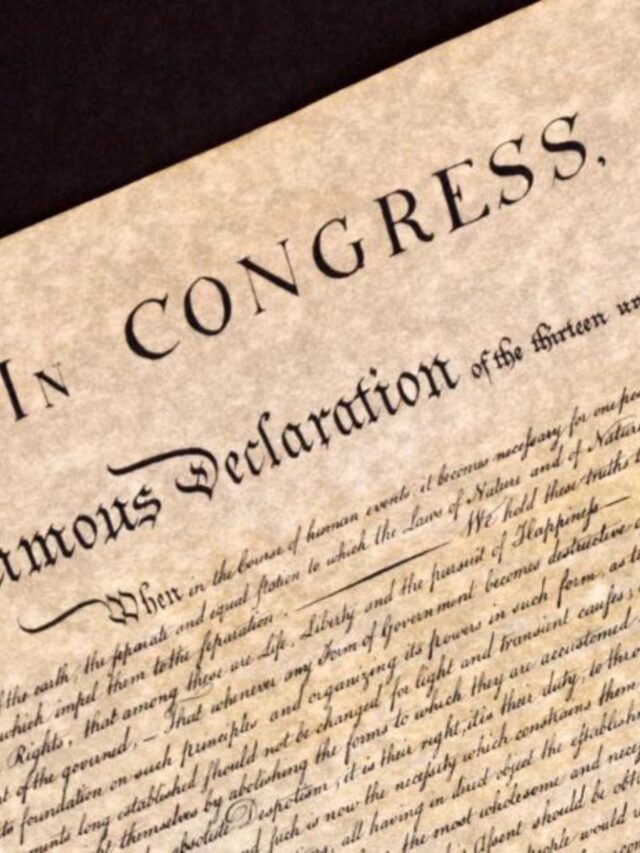 IN CONGRESS.
imous Declaration of the thirteen un
When in the Course of human events, it becomes necessary for one peo
of the earth, the separate and equal station to which the Laws of Nature and of Nature
which impel them to the separation. — We hold these truths t
Rights, that among these are Life, Liberty and the pursuit of Happiness —
t of the governed, — That whenever any Form of Government becomes destructive
ts foundation on such principles and organizing its powers in such form, as t
ments long established should not be changed for light and transient causes;
themselves by abolishing the forms to which they are accustomed
absolute Despotism, it is their right, it is their duty, to thro
and such is now the necessity which constrains them
all having in direct object the establish
the most wholesome and nece
Assent should be obt
people would